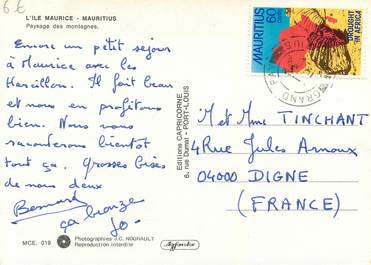 6€
L'ILE MAURICE - MAURITIUS
Paysage des montagnes.
Encore un petit séjour
à Maurice avec les
Harcillon. Il fait beau
et nous en profitons
bien. Nous vous
raconterons bientôt
tout ça. Grosses bises
de nous deux
Bernard
ça bronze
Jo-
MCE. 019
Photographies J.C. NOURAULT
Reproduction interdite
Editions CAPRICORNE
6, rue Dumat - PORT-LOUIS
MAURITIUS
60
DROUGHT
IN AFRICA
GRAND
M et Mme TINCHANT
4 Rue Jules Arnoux
04000 DIGNE
(FRANCE)